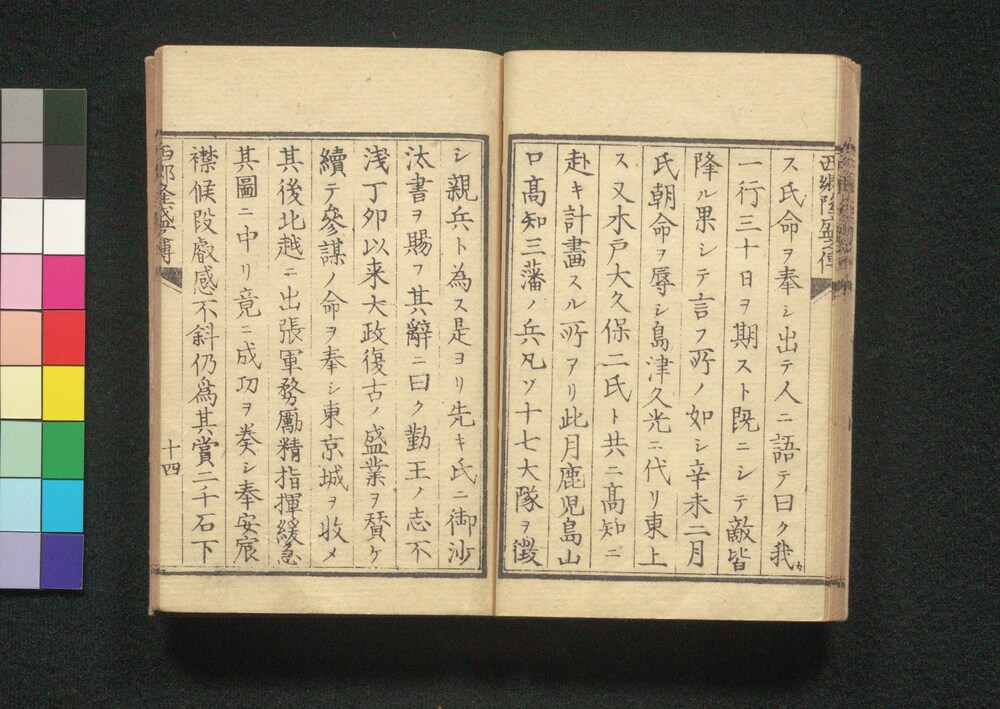 西郷隆盛傳
ス氏命ヲ奉シ出テ人ニ語テ曰ク我カ
一行三十日ヲ期スト既ニシテ敵皆
降ル果シテ言フ所ノ如シ辛未二月
氏朝命ヲ辱シ島津久光ニ代リ東上
ス又木戸大久保二氏ト共ニ高知ニ
赴キ計畫スル所アリ此月鹿児島山
口高知三藩ノ兵凡ソ十七大隊ヲ徴
シ親兵ト為ス是ヨリ先キ氏ニ御沙
汰書ヲ賜フ其辭ニ曰ク勤王ノ志不
浅丁卯以来大政復古ノ盛業ヲ賛ケ
續テ參謀ノ命ヲ奉シ東京城ヲ收メ
其後北越ニ出張軍務勵精指揮緩急
其圖ニ中リ竟ニ成功ヲ奏シ奉安宸
襟候段叡感不斜仍爲其賞二千石下
西郷隆盛傳
十四